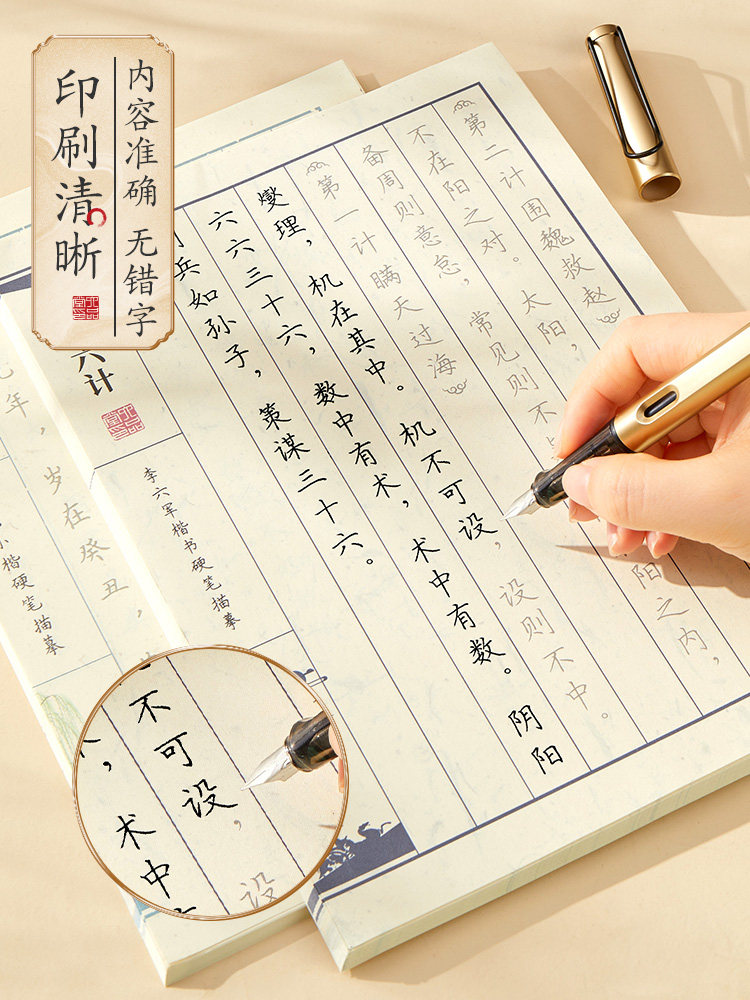 内容准确 无错字
印刷清晰
六计
李六军楷书硬笔描摹
兵如孙子，策谋三十六。
六六三十六，数中有术，术中有数。阴阳
燮理，机在其中。机不可设，设则不中。
第一计 瞒天过海
备周则意怠，常见则不 阳之内，
不在阳之对。太阳，
第二计 围魏救赵
年，岁在癸丑，
小楷硬笔描摹
不可设，设
，术中